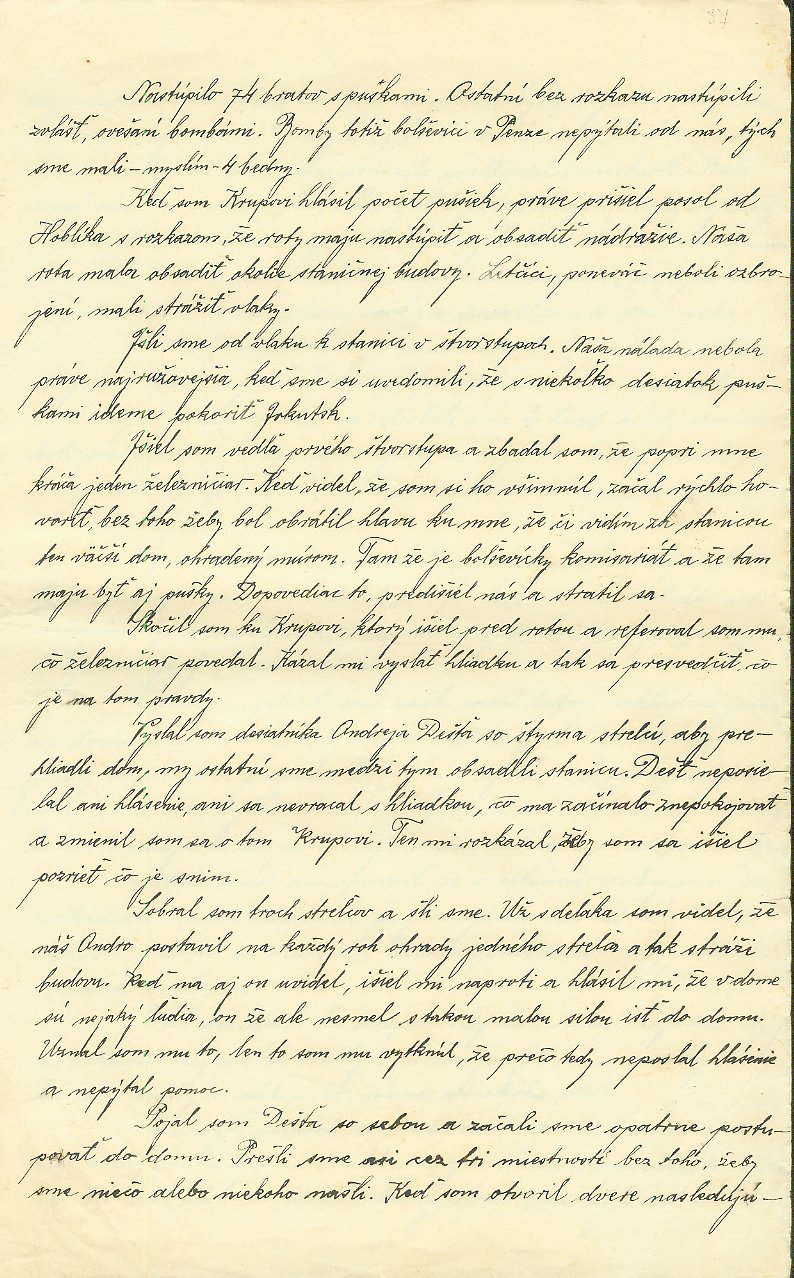 37
Nastúpilo 74 bratov s puškami. Ostatní bez rozkazu nastúpili
zvlášť, ovešaní bombámi. Bomby totiž bolševici v Penze nepýtali od nás, tých
sme mali – myslím – 4 bedny.
Keď som Krupovi hlásil počet pušiek, práve prišiel posol od
Hoblíka s rozkazom, že roty maju nastúpiť a obsadiť nádražie. Naša
rota mala obsadiť okolie staničnej budovy. Letčíci, poneváč neboli ozbro-
jení, mali strážiť vlaky.
Išli sme od vlaku k stanici v štvorstupoch. Naša nálada nebola
práve najružovejšia, keď sme si uvedomili, že s niekoľko desiatok puš-
kami ideme pokoriť Irkutsk.
Išiel som vedľa prvého štvorstupa a zbadal som, že popri mne
kráča jeden železničiar. Keď videl, že som si ho všimnúl, začal rýchlo ho-
voriť, bez toho žeby bol obrátil hlavu ku mne, že či vidím za stanicou
ten väčší dom, ohradený múrom. Tam že je bolševícky komisariát a že tam
maju byť aj pušky. Dopovediac to, predišiel nás a stratil sa.
Skočil som ku Krupovi, ktorý išiel pred rotou a referoval som mu,
čo železničiar povedal. Kázal mi vyslať hliadku a tak sa presvedčiť, čo
je na tom pravdy.
Vyslal som desiatníka Andreja Dešťa so štyrma strelci, aby pre-
hliadli dom, my ostatní sme medzi tym obsadili stanicu. Dešť neposie-
lal ani hlásenie, ani sa nevracal s hliadkou, čo ma začínalo znepokojovať
a zmienil som sa o tom Krupovi. Ten mi rozkázal, žeby som sa išiel
pozrieť čo je s ním.
Sobral som troch strelcov a šli sme. Už s deľaka som videl, že
náš Andro postavil na každý roh ohrady jedného strelca a tak stráži
budovu. Keď ma aj on uvidel, išiel mi naproti a hlásil mi, že v dome
sú nejaký ľudia, on že ale nesmel s takou malou silou isť do domu.
Uznal som mu to, len to som mu vytknúl, že prečo tedy neposlal hlásenie
a nepýtal pomoc.
Pojal som Dešťa so sebou a začali sme opatrne postu-
povať do domu. Prešli sme asi cez tri miestností bez toho, žeby
sme niečo alebo niekoho našli. Keď som otvoril dvere nasledujú-